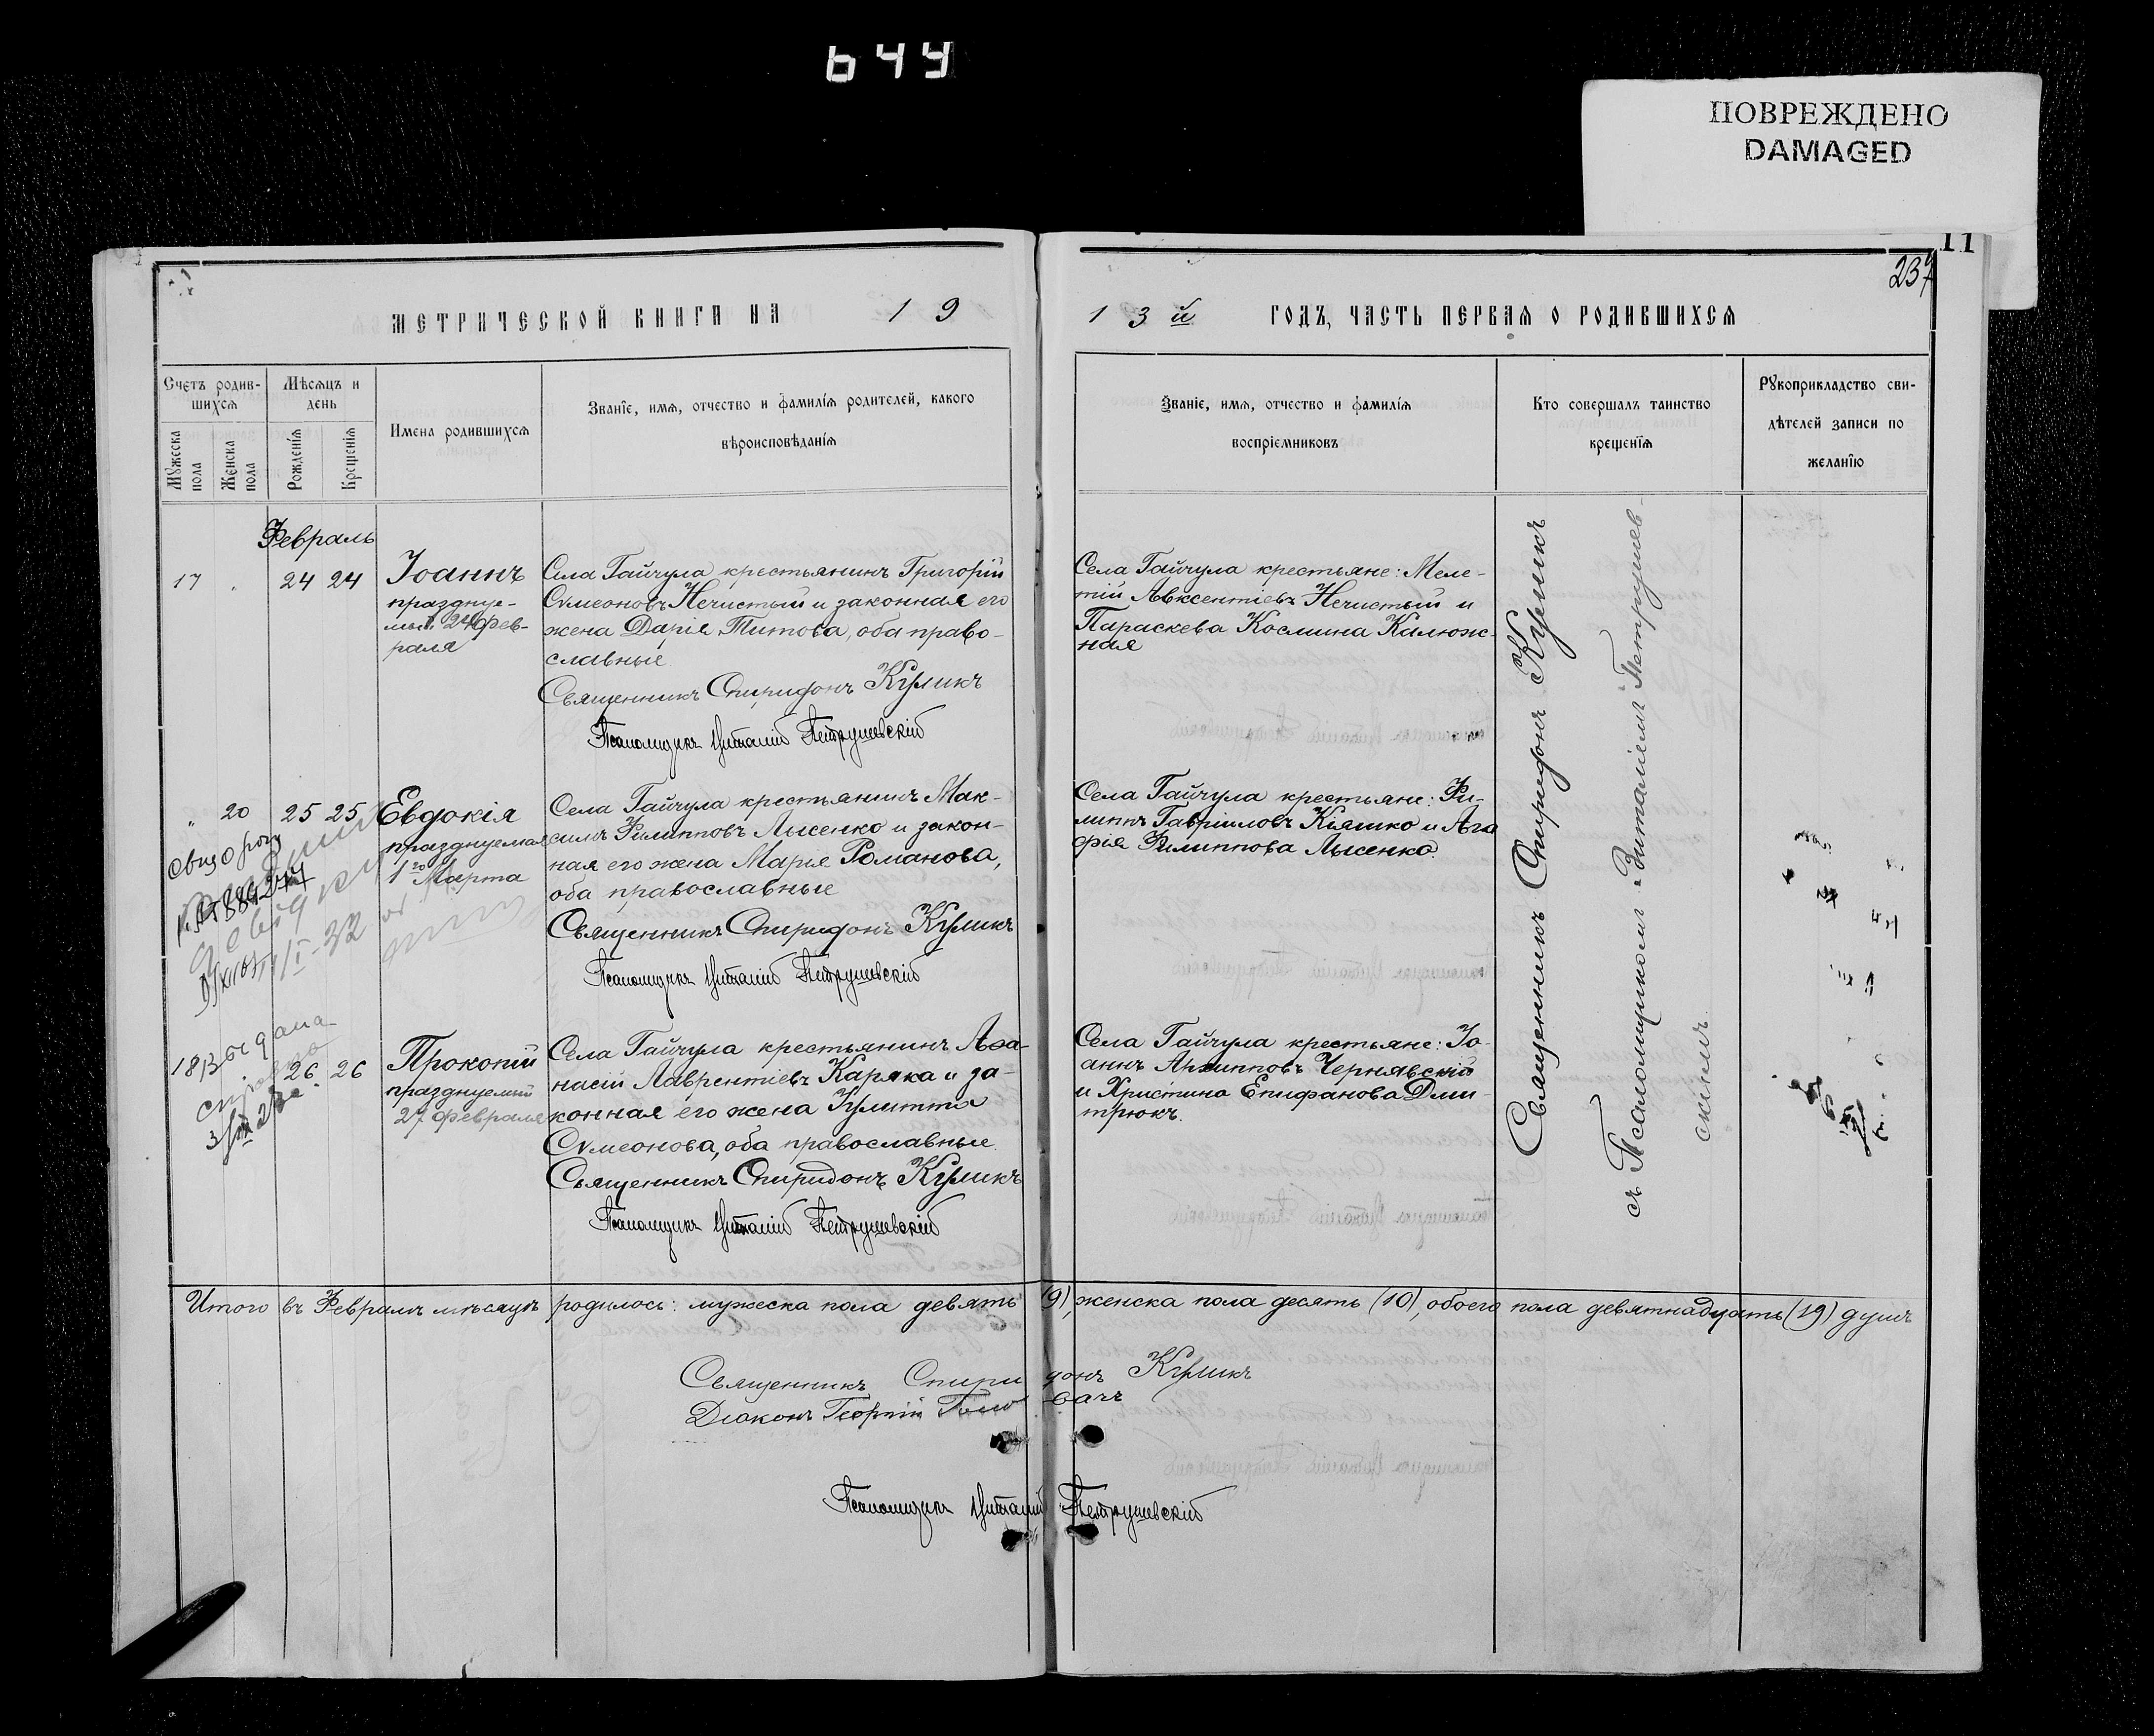 649
ПОВРЕЖДЕНО
DAMAGED
11
237
МЕТРИЧЕСКОЙ КНИГИ НА 19
13й ГОДЪ, ЧАСТЬ ПЕРВАЯ О РОДИВШИХСЯ
Счетъ родив-
шихся
Мужеска
пола
Женска
пола
Мѣсяцъ и
день
Рожденїя
Крещенїя
Имена родившихся
Званїе, имя, отчество и фамилїя родителей, какого
вѣроисповѣданїя
Званїе, имя, отчество и фамилїя
воспрїемниковъ
Кто совершалъ таинство
крещенїя
Рукоприкладство сви-
дѣтелей записи по
желанїю
Февраль
17 24 24
Іоаннъ
празднуе-
мый 24 фев-
раля
Села Гайчула крестьянинъ Григорій
Сѵмеоновъ Нечистый и законная его
жена Дарія Титова, оба право-
славные
Священникъ Спиридонъ Куликъ
Псаломщикъ Виталій Петрушевскій
Села Гайчула крестьяне: Меле-
тій Авксентіевъ Нечистый и
Параскева Космина Калюж-
ная
" 20 25 25
Евдокія
празднуемая
1го Марта
Села Гайчула крестьянинъ Мак-
симъ Филипповъ Лысенко и закон-
ная его жена Марія Романова,
оба православные
Священникъ Спиридонъ Куликъ
Псаломщикъ Виталій Петрушевскій
Села Гайчула крестьяне: Фи-
липпъ Гавріиловъ Кіяшко и Ага
фія Филиппова Лысенко.
I-32
18 26 26
Прокопій
празднуемый
27 февраля
Села Гайчула крестьянинъ Аѳа-
насій Лаврентіевъ Каряка и за-
конная его жена Іулитта
Сѵмеонова, оба православные.
Священникъ Спиридонъ Куликъ
Псаломщикъ Виталій Петрушевскій
Села Гайчула крестьяне: Іо-
аннъ Архипповъ Чернявскій
и Христина Епифанова Дми-
трюкъ.
Священникъ Спиридонъ Куликъ
съ Псаломщикомъ Виталіемъ Петрушев-
скимъ.
Итого въ Февралѣ мѣсяцѣ родилось: мужеска пола девять (9), женска пола десять (10), обоего пола девятнадцать (19) душъ
Священникъ Спиридонъ Куликъ
Діаконъ Георгій Головачъ
Псаломщикъ Виталій Петрушевскій